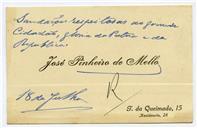 Saudações respeitosas ao grande
Cidadão, gloria da Patria e da
Republica
José Pinheiro de Mello
18 de Julho
R
T. da Queimada, 15
Residencia, 24